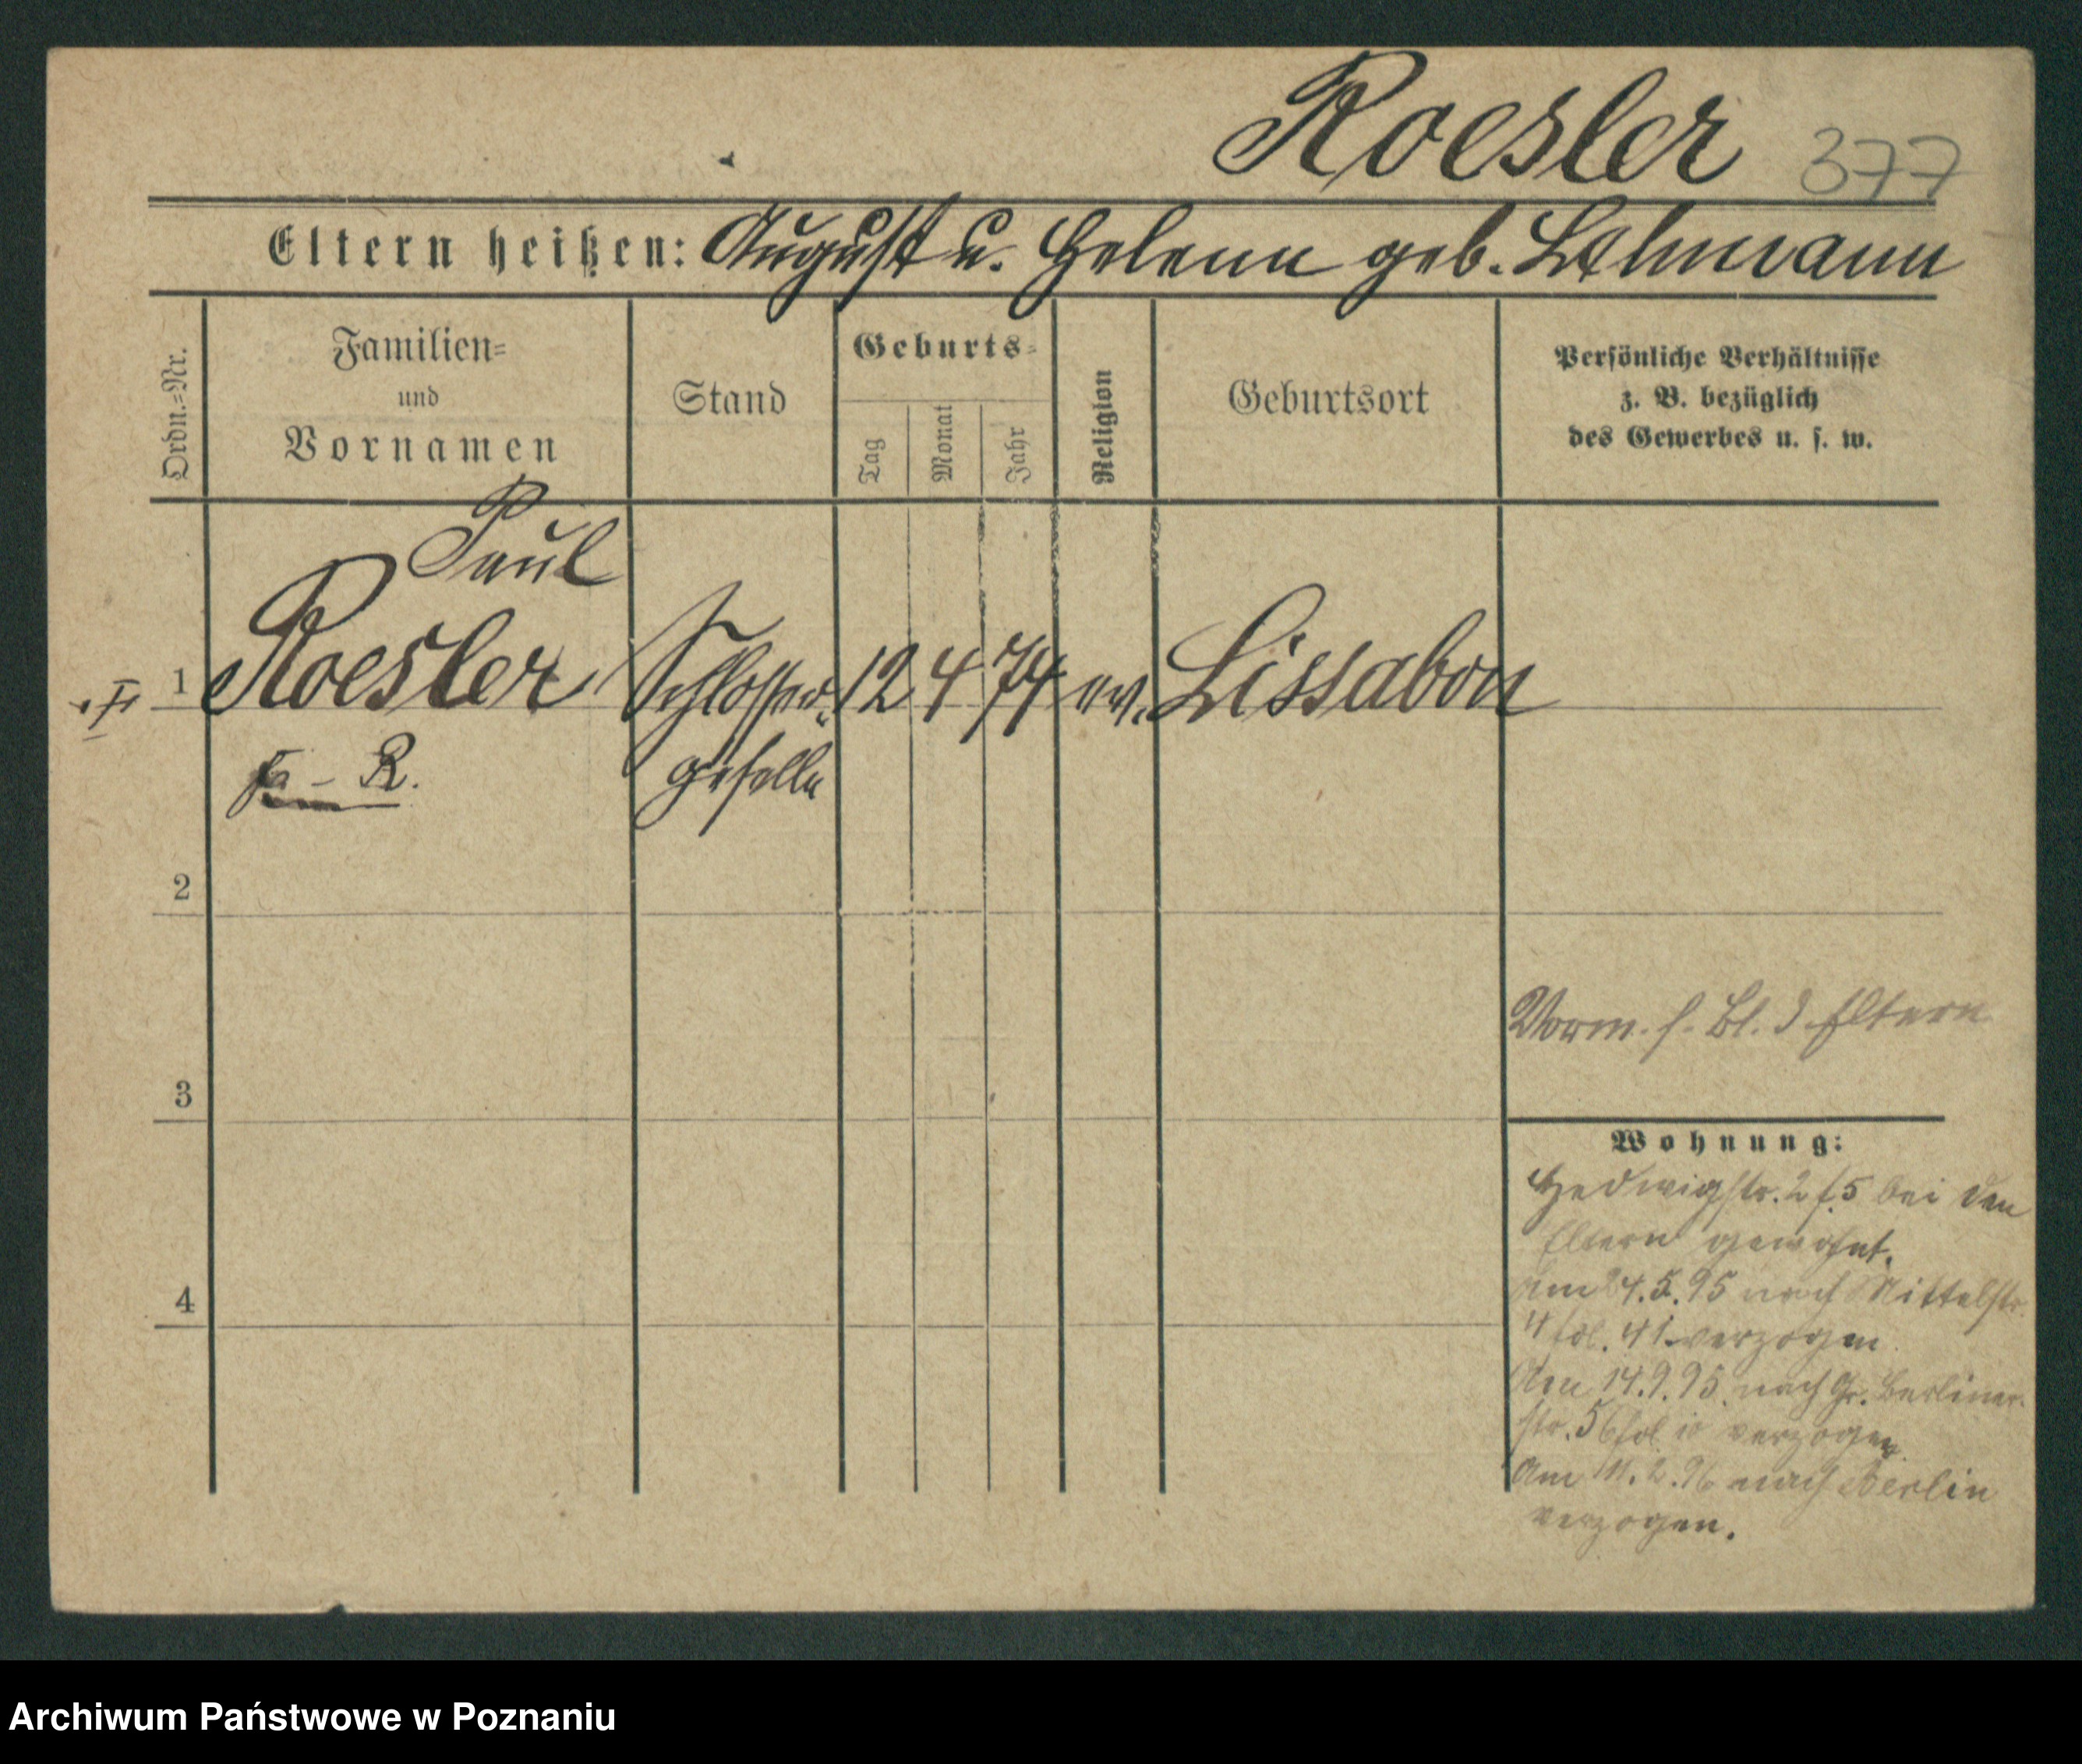 Roesler 377
Eltern heißen: August u. Helene geb. Lehmann
Ordn.=Nr.
Familien=
und
Vornamen
Stand
Geburts=
Tag
Monat
Jahr
Religion
Geburtsort
Persönliche Verhältnisse
z. B. bezüglich
des Gewerbes u. s. w.
Paul
1 Roesler Schlosser- 12 4 74 ev. Lissabon
R. geselle
2
Vorm. s. Bl. d Eltern
3
Wohnung:
Hedwigstr. 2 f. 5 bei den
Eltern gewohnt.
4
Am 24.5.95 nach Mittelstr.
4 fol. 41 verzogen
Am 14.9.95 nach Gr. Berliner-
str. 56 fol 10 verzogen
Am 11.2.96 nach Berlin
verzogen.
Archiwum Państwowe w Poznaniu